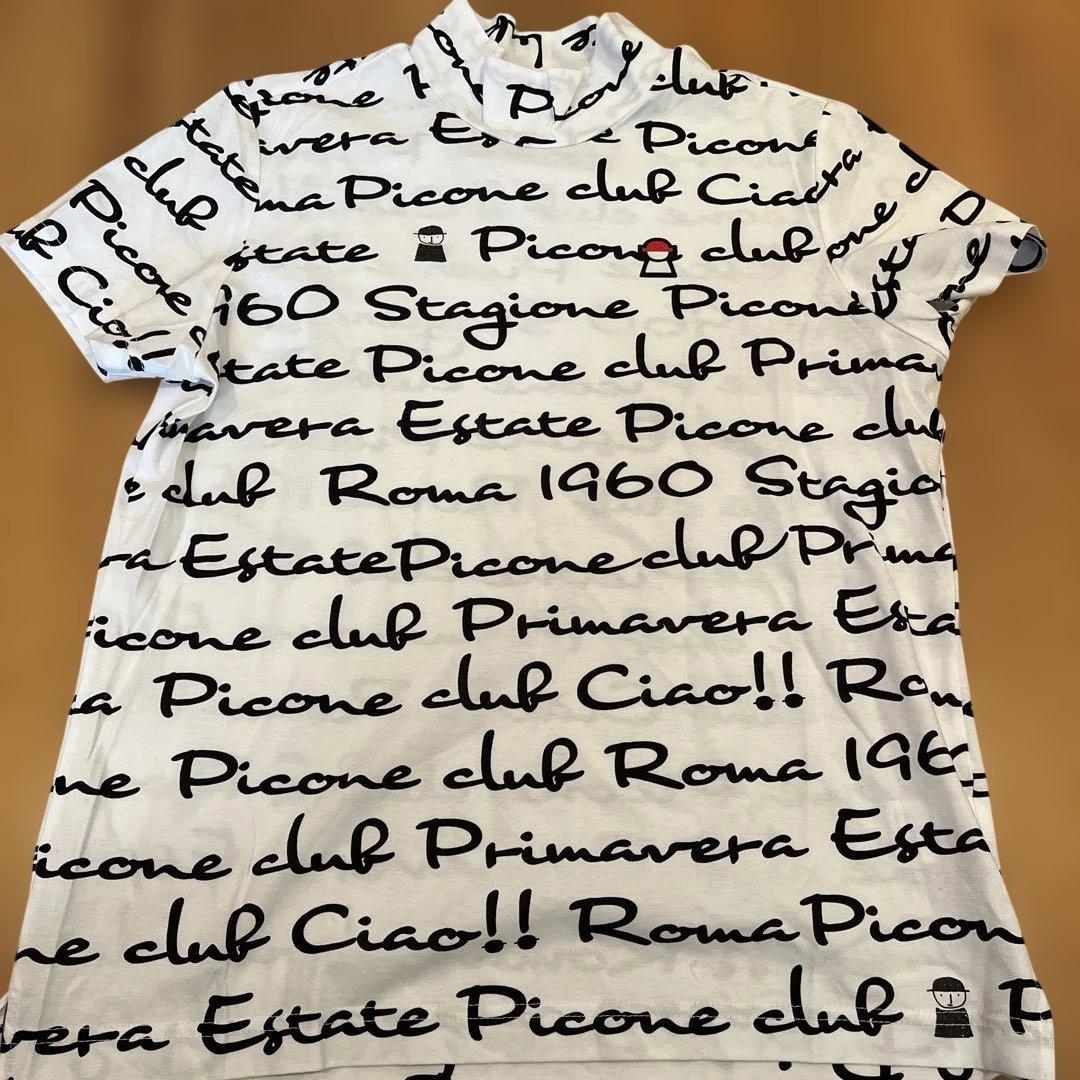 Picone club
avera Estate Picone
ma Picone club Ciao
state Picone club
1960 Stagione Picone
state Picone club Primav
mavera Estate Picone club
e club Roma 1960 Stagio
ra Estate Picone club Prima
icone club Primavera Esta
ra Picone club Ciao!! Roma
ne Picone club Roma 1960
icone club Primavera Esta
ne club Ciao!! Roma Picon
vera Estate Picone club P